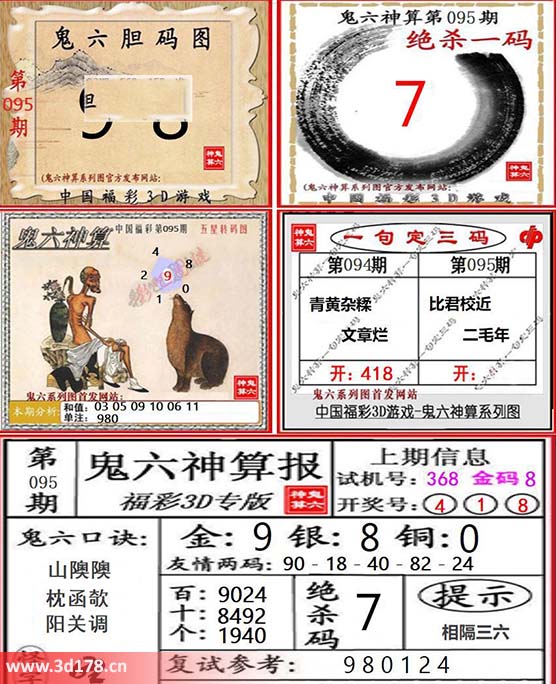 鬼六胆码图
第
095
期
胆
(鬼六神算系列图官方发布网站:
中国福彩3D游戏
神鬼
算六
鬼六神算第095期
绝杀一码
7
(鬼六神算系列图官方发布网站:
中国福彩3D游戏
神鬼
算六
鬼六神算
中国福彩第095期
五星转码图
4
8
2
9
1
0
神鬼
算六
鬼六系列图首发网站:
本期分析:
和值: 03 05 09 10 06 11
单注: 980
神鬼
算六
一句定三码
第094期
第095期
青黄杂糅
文章烂
比君校近
二毛年
开: 418
开:
鬼六系列图首发网站:
中国福彩3D游戏-鬼六神算系列图
第
095
期
鬼六神算报
福彩3D专版
神鬼
算六
上期信息
试机号: 368 金码 8
开奖号: 4 1 8
鬼六口诀:
山隩隩
枕函欹
阳关调
金: 9 银: 8 铜: 0
友情两码: 90-18-40-82-24
百: 9024
十: 8492
个: 1940
绝杀码
7
提示
相隔三六
复试参考: 980124
www.3d178.cn